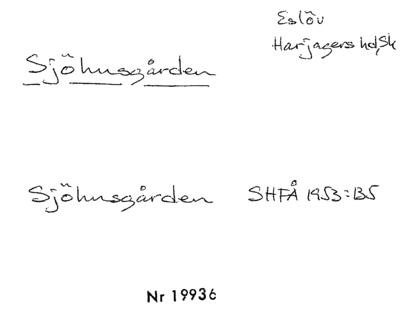 Eslöv
Harjagers hd, Sk
Sjöhusgården
Sjöhusgården SHFÅ 1953:135
Nr 19936